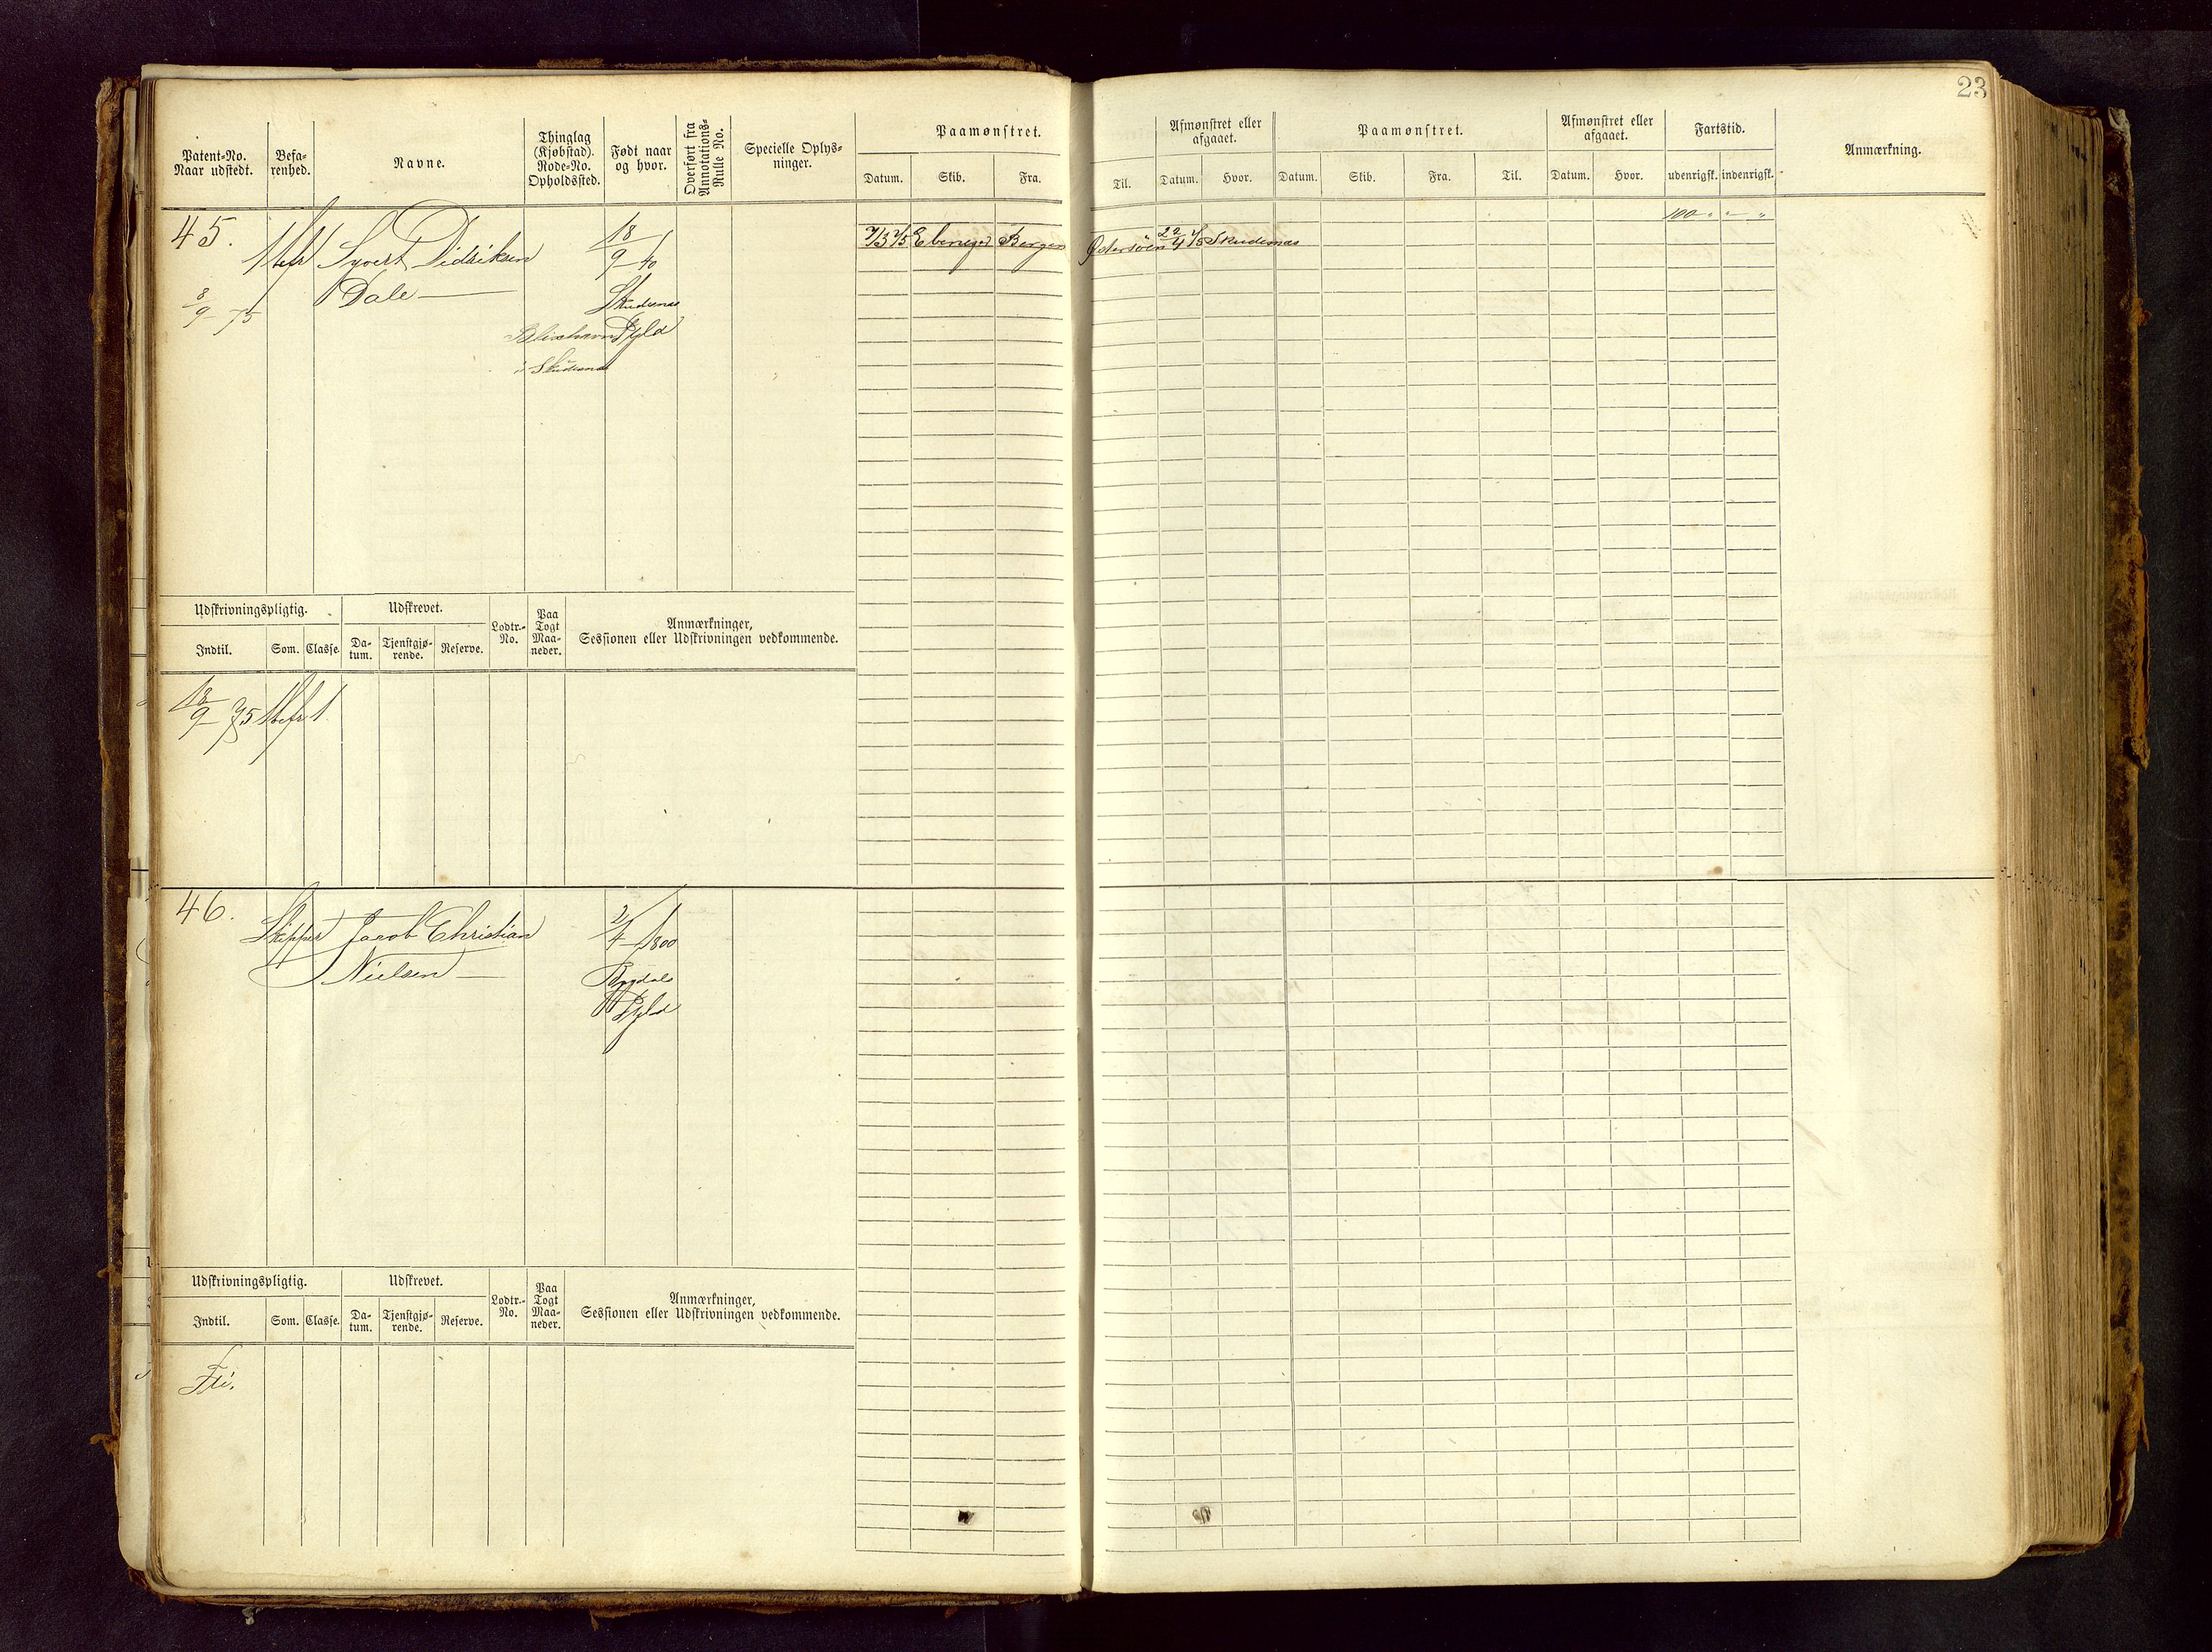 23
Patent-No. Naar udstedt.
Befarenhed.
Navne.
Thinglag (Kjøbstad). Rode-No. Opholdssted.
Født naar og hvor.
Overført fra Annotations-Rulle No.
Specielle Oplysninger.
Paamønstret.
Datum. Skib. Fra. Til.
Afmønstret eller afgaaet.
Datum. Hvor.
Paamønstret.
Datum. Skib. Fra. Til.
Afmønstret eller afgaaet.
Datum. Hvor.
Fartstid.
udenrigsk. indenrigsk.
Anmærkning.
45.
Syvert Didriksen
Dale
8/9 75
18/9 40
Skudesnæs
Pgld
i Skudesnæs
7/3 75 Ebenezer Bergen Østersöen 22/4 75 Skudesnæs
100 " " "
Udskrivningspligtig. Udskrevet.
Lodtr.-No.
Paa Togt Maaneder.
Anmærkninger,
Sessionen eller Udskrivningen vedkommende.
Indtil. Som. Classe. Datum. Tjenstgjørende. Reserve.
18/9 75 1
46.
Skipper Jacob Christian
Nielsen
2/4 1800
Pgld
Udskrivningspligtig. Udskrevet.
Lodtr.-No.
Paa Togt Maaneder.
Anmærkninger,
Sessionen eller Udskrivningen vedkommende.
Indtil. Som. Classe. Datum. Tjenstgjørende. Reserve.
Fri.